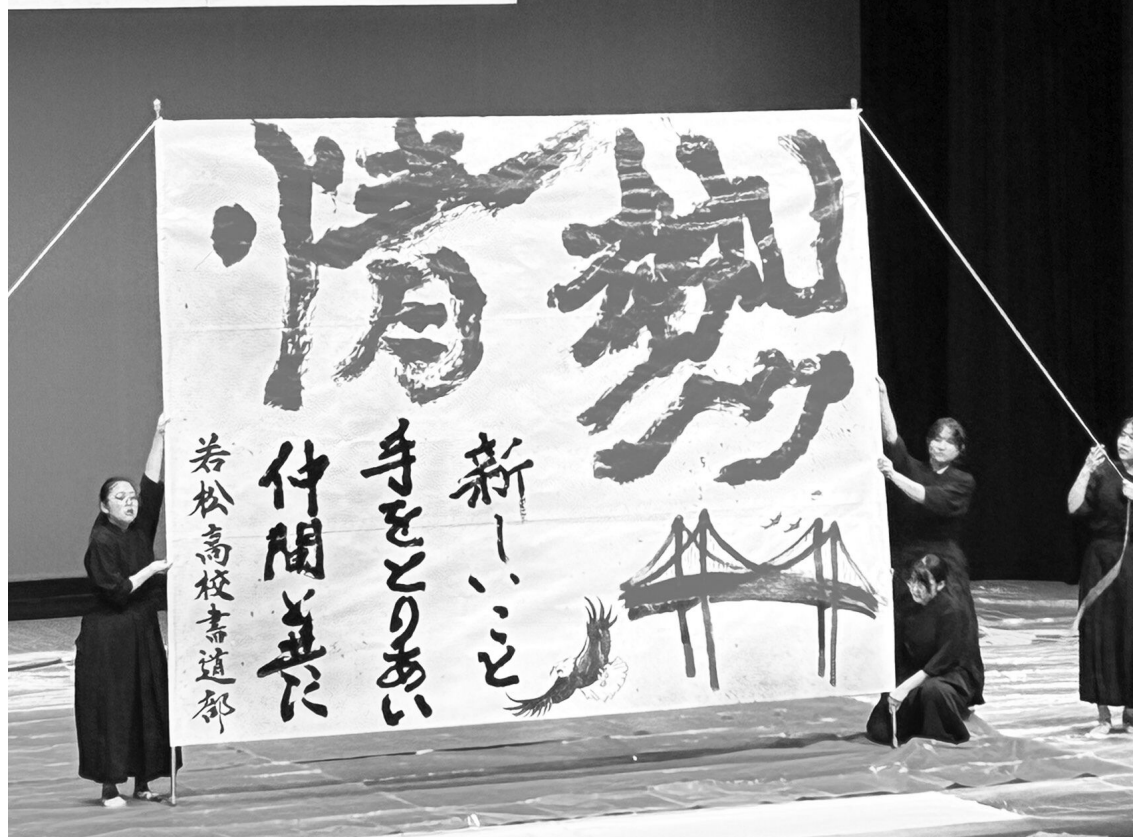 熱情
新しいこと
手をとりあい
仲間と共に
若松高校書道部